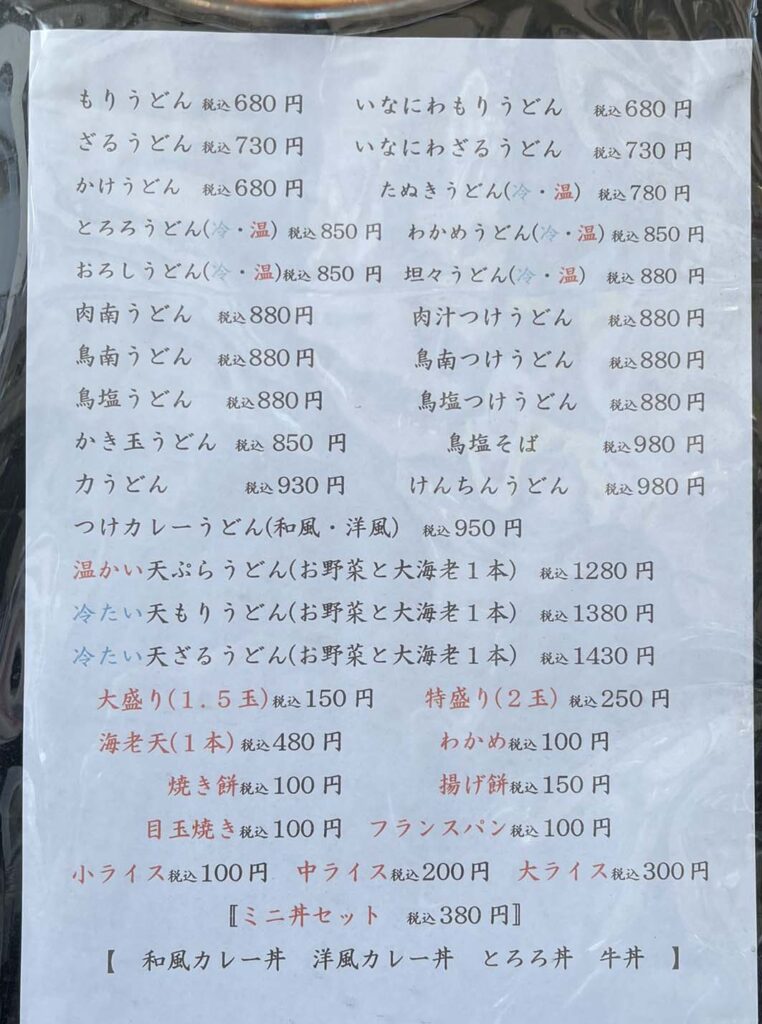 もりうどん 税込680円 いなにわもりうどん 税込680円
ざるうどん 税込730円 いなにわざるうどん 税込730円
かけうどん 税込680円 たぬきうどん(冷・温) 税込780円
とろろうどん(冷・温) 税込850円 わかめうどん(冷・温) 税込850円
おろしうどん(冷・温)税込850円 坦々うどん(冷・温) 税込880円
肉南うどん 税込880円 肉汁つけうどん 税込880円
鳥南うどん 税込880円 鳥南つけうどん 税込880円
鳥塩うどん 税込880円 鳥塩つけうどん 税込880円
かき玉うどん 税込850円 鳥塩そば 税込980円
力うどん 税込930円 けんちんうどん 税込980円
つけカレーうどん(和風・洋風) 税込950円
温かい天ぷらうどん(お野菜と大海老1本) 税込1280円
冷たい天もりうどん(お野菜と大海老1本) 税込1380円
冷たい天ざるうどん(お野菜と大海老1本) 税込1430円
大盛り(1.5玉)税込150円 特盛り(2玉) 税込250円
海老天(1本) 税込480円 わかめ税込100円
焼き餅税込100円 揚げ餅税込150円
目玉焼き税込100円 フランスパン税込100円
小ライス税込100円 中ライス税込200円 大ライス税込300円
〚ミニ丼セット 税込380円〛
【 和風カレー丼 洋風カレー丼 とろろ丼 牛丼 】